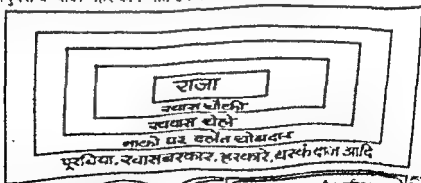 राजा
खास चौकी
खवास चेले
नाको पर बलैत चोबदार
पूरबिया, खासबरकार, हरकारे, बरकंदाज आदि